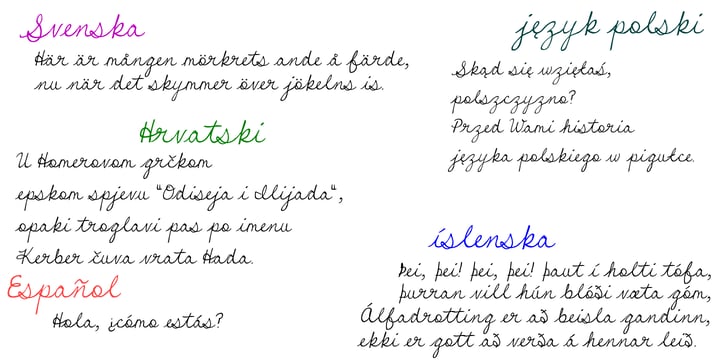 Svenska
Här är mången mörkrets ande å färde,
nu när det skymmer över jökelns is.
język polski
Skąd się wzięłaś,
polszczyzno?
Przed Wami historia
języka polskiego w pigułce.
Hrvatski
U Homerovom grčkom
epskom spjevu "Odiseja i Ilijada",
opaki troglavi pas po imenu
Kerber čuva vrata Hada.
íslenska
Þei, þei! þei, þei! þaut í holti tófa,
þurran vill hún blóði væta góm,
Álfadrotting er að beisla gandinn,
ekki er gott að verða á hennar leið.
Español
Hola, ¿cómo estás?